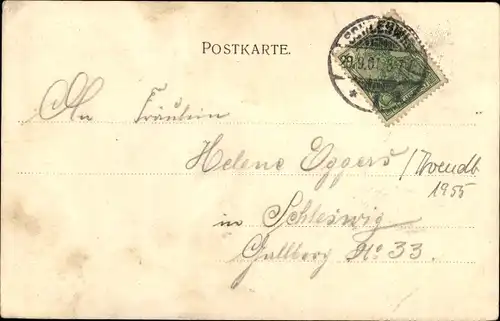 POSTKARTE.
SCHLESWIG
29.9.01
An Fräulein
Helene Eggers
1955
in Schleswig
Gallberg No 33.